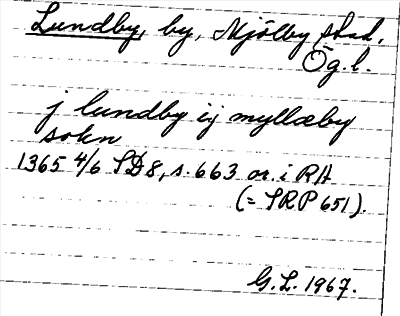 Lundby, by, Mjölby stad,
Ög.l.
j lundby ij myllæby
sokn
1365 4/6 SD 8, s. 663 or. i RA
(= SRP 651).
G.L. 1967.